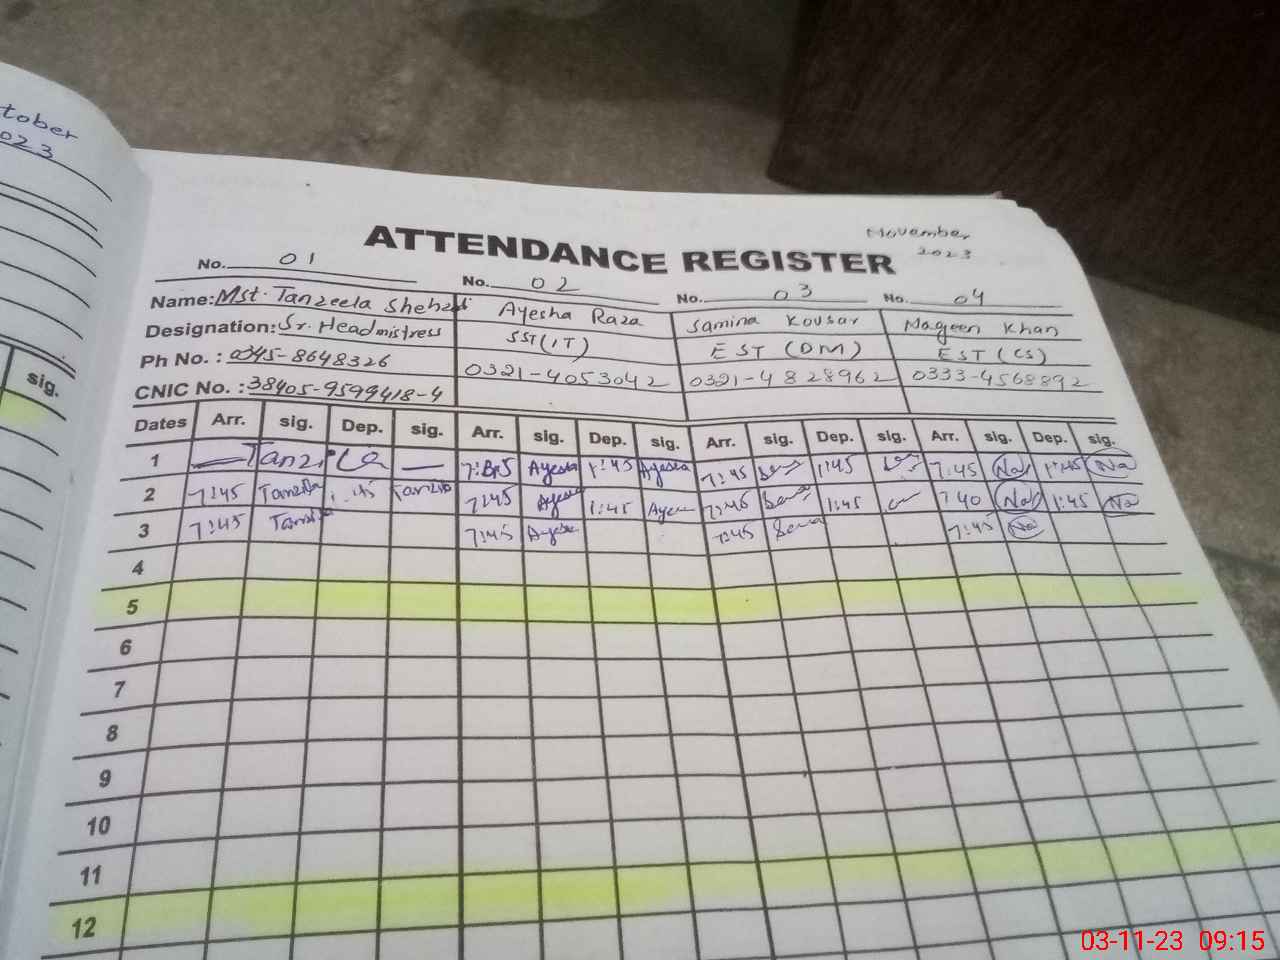 tober
023
sig.
November
2023
ATTENDANCE REGISTER
No. 01 No. 02 No. 03 No. 04
Name: Mst. Tanzeela Shehzadi Ayesha Raza Samina Kousar Nageen Khan
Designation: Sr. Headmistress SST (IT) EST (DM) EST (CS)
Ph No. : 0345-8648326 0321-4053042 0321-4828962 0333-4568892
CNIC No. : 38405-9599418-4
Dates Arr. sig. Dep. sig. Arr. sig. Dep. sig. Arr. sig. Dep. sig. Arr. sig. Dep. sig.
1 Ayesha 1:45 Ayesha 7:45 1:45 7:45 Na 1:45 Na
2 7:45 Tanzila 1:45 Tanzila 7:45 Ayesha 1:45 7:45 1:45 7:40 Na 1:45 Na
3 7:45 7:45 Ayesha 7:45 7:45 Na
4
5
6
7
8
9
10
11
12
03-11-23 09:15